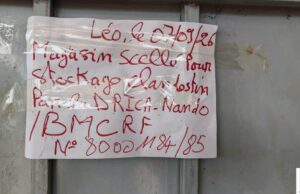 Léo, le 07/09/26
Magasin scellé pour
stockage clandestin
Par la DRICA-Nando
/BMCRF
N° 80001184/85